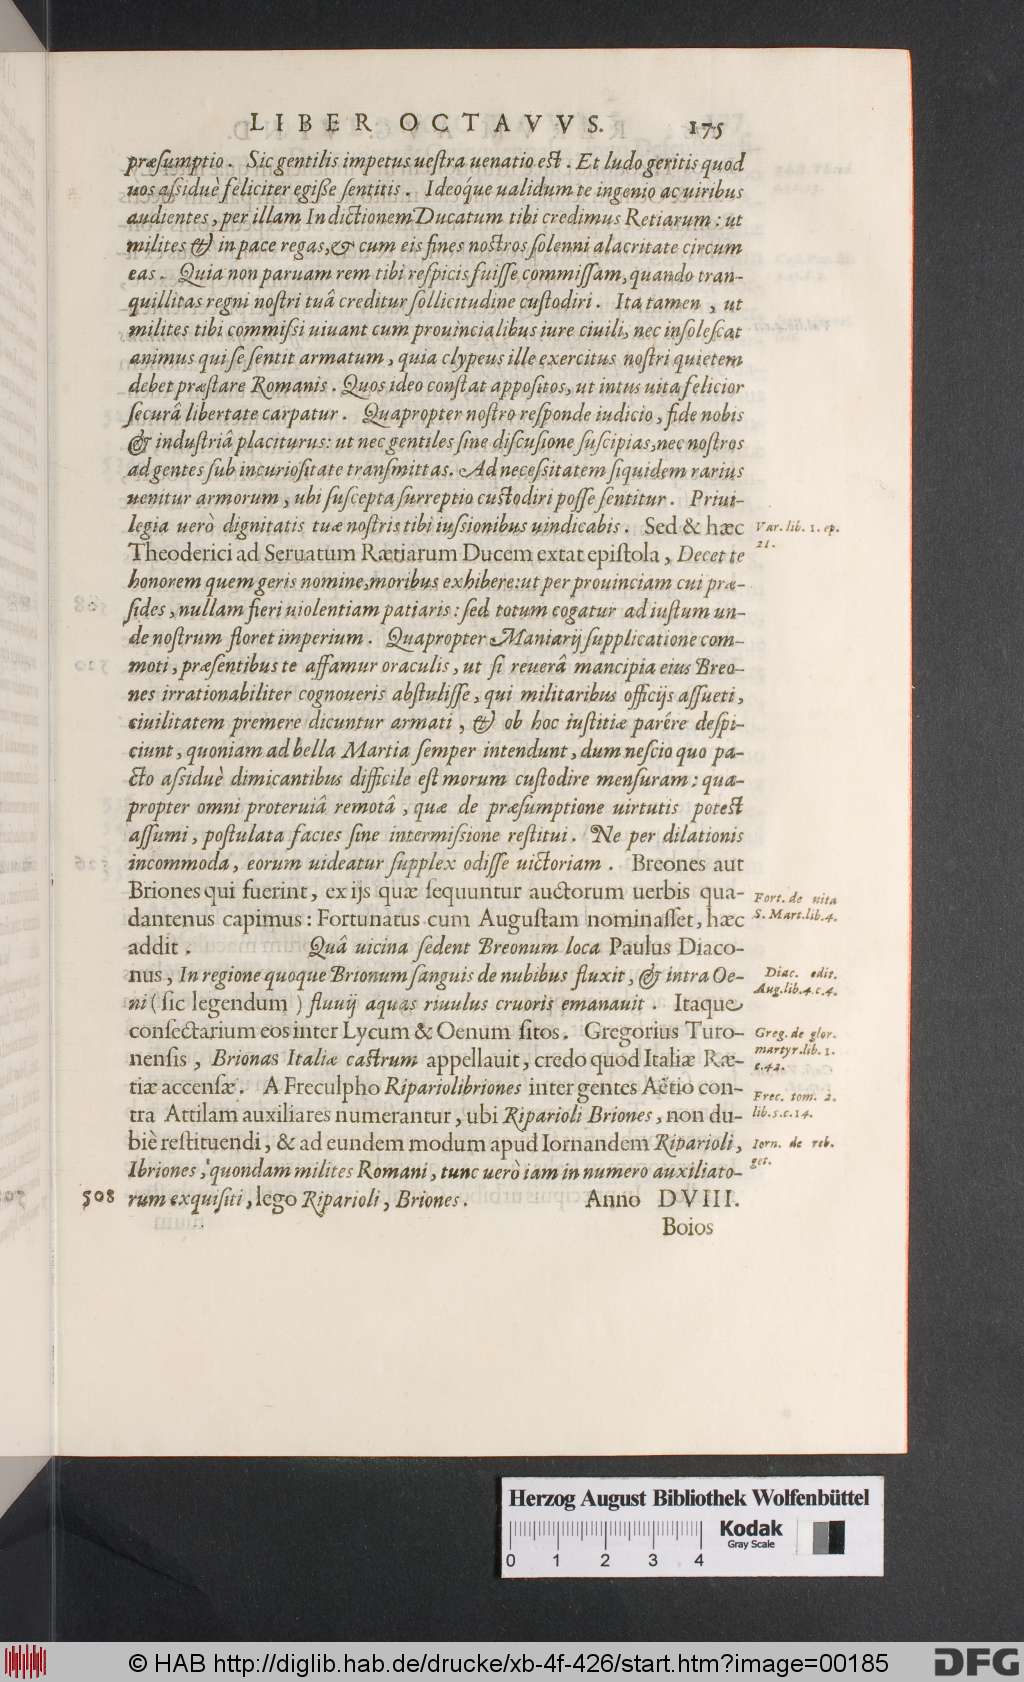 LIBER OCTAVVS. 175
præſumptio. Sic gentilis impetus ueſtra uenatio eſt. Et ludo geritis quod
uos aſsiduè feliciter egiſſe ſentitis. Ideoq́ue ualidum te ingenio ac uiribus
audientes, per illam Indictionem Ducatum tibi credimus Retiarum: ut
milites & in pace regas, & cum eis fines noſtros ſolenni alacritate circum
eas. Quia non paruam rem tibi reſpicis fuiſſe commiſſam, quando tran-
quillitas regni noſtri tuâ creditur ſollicitudine cuſtodiri. Ita tamen, ut
milites tibi commiſsi uiuant cum prouincialibus iure ciuili, nec inſoleſcat
animus qui ſe ſentit armatum, quia clypeus ille exercitus noſtri quietem
debet præſtare Romanis. Quos ideo conſtat appoſitos, ut intus uita felicior
ſecurâ libertate carpatur. Quapropter noſtro reſponde iudicio, fide nobis
& induſtriâ placiturus: ut nec gentiles ſine diſcuſione ſuſcipias, nec noſtros
ad gentes ſub incurioſitate tranſmittas. Ad neceſsitatem ſiquidem rarius
uenitur armorum, ubi ſuſcepta ſurreptio cuſtodiri poſſe ſentitur. Priui-
legia uerò dignitatis tuæ noſtris tibi iuſsionibus uindicabis. Sed & hæc
Var. lib. 1. ep.
21.
Theoderici ad Seruatum Rætiarum Ducem extat epiſtola, Decet te
honorem quem geris nomine, moribus exhibere: ut per prouinciam cui præ-
ſides, nullam fieri uiolentiam patiaris: ſed totum cogatur ad iuſtum un-
de noſtrum floret imperium. Quapropter Maniarij ſupplicatione com-
moti, præſentibus te affamur oraculis, ut ſi reuerâ mancipia eius Breo-
nes irrationabiliter cognoueris abſtuliſſe, qui militaribus officijs aſſueti,
ciuilitatem premere dicuntur armati, & ob hoc iuſtitiæ parére deſpi-
ciunt, quoniam ad bella Martia ſemper intendunt, dum neſcio quo pa-
cto aſsiduè dimicantibus difficile eſt morum cuſtodire menſuram: qua-
propter omni proteruiâ remotâ, quæ de præſumptione uirtutis poteſt
aſſumi, poſtulata facies ſine intermiſsione reſtitui. Ne per dilationis
incommoda, eorum uideatur ſupplex odiſſe uictoriam. Breones aut
Briones qui fuerint, ex ijs quæ ſequuntur auctorum uerbis qua-
Fort. de uita
S. Mart. lib. 4.
dantenus capimus: Fortunatus cum Auguſtam nominaſſet, hæc
addit. Quâ uicina ſedent Breonum loca Paulus Diaco-
nus, In regione quoque Brionum ſanguis de nubibus fluxit, & intra Oe-
Diac. edit.
Aug. lib. 4. c. 4.
ni (ſic legendum) fluuij aquas riuulus cruoris emanauit. Itaque
conſectarium eos inter Lycum & Oenum ſitos. Gregorius Turo-
Greg. de glor.
martyr. lib. 1.
c. 42.
nenſis, Brionas Italiæ caſtrum appellauit, credo quod Italiæ Ræ-
tiæ accenſæ. A Freculpho Ripariolibriones inter gentes Aëtio con-
Frec. tom. 2.
lib. 5. c. 14.
tra Attilam auxiliares numerantur, ubi Riparioli Briones, non du-
biè reſtituendi, & ad eundem modum apud Iornandem Riparioli,
Iorn. de reb.
get.
Ibriones, quondam milites Romani, tunc uerò iam in numero auxiliato-
508 rum exquiſiti, lego Riparioli, Briones. Anno DVIII.
Boios
Herzog August Bibliothek Wolfenbüttel
Kodak
Gray Scale
0 1 2 3 4
© HAB http://diglib.hab.de/drucke/xb-4f-426/start.htm?image=00185
DFG